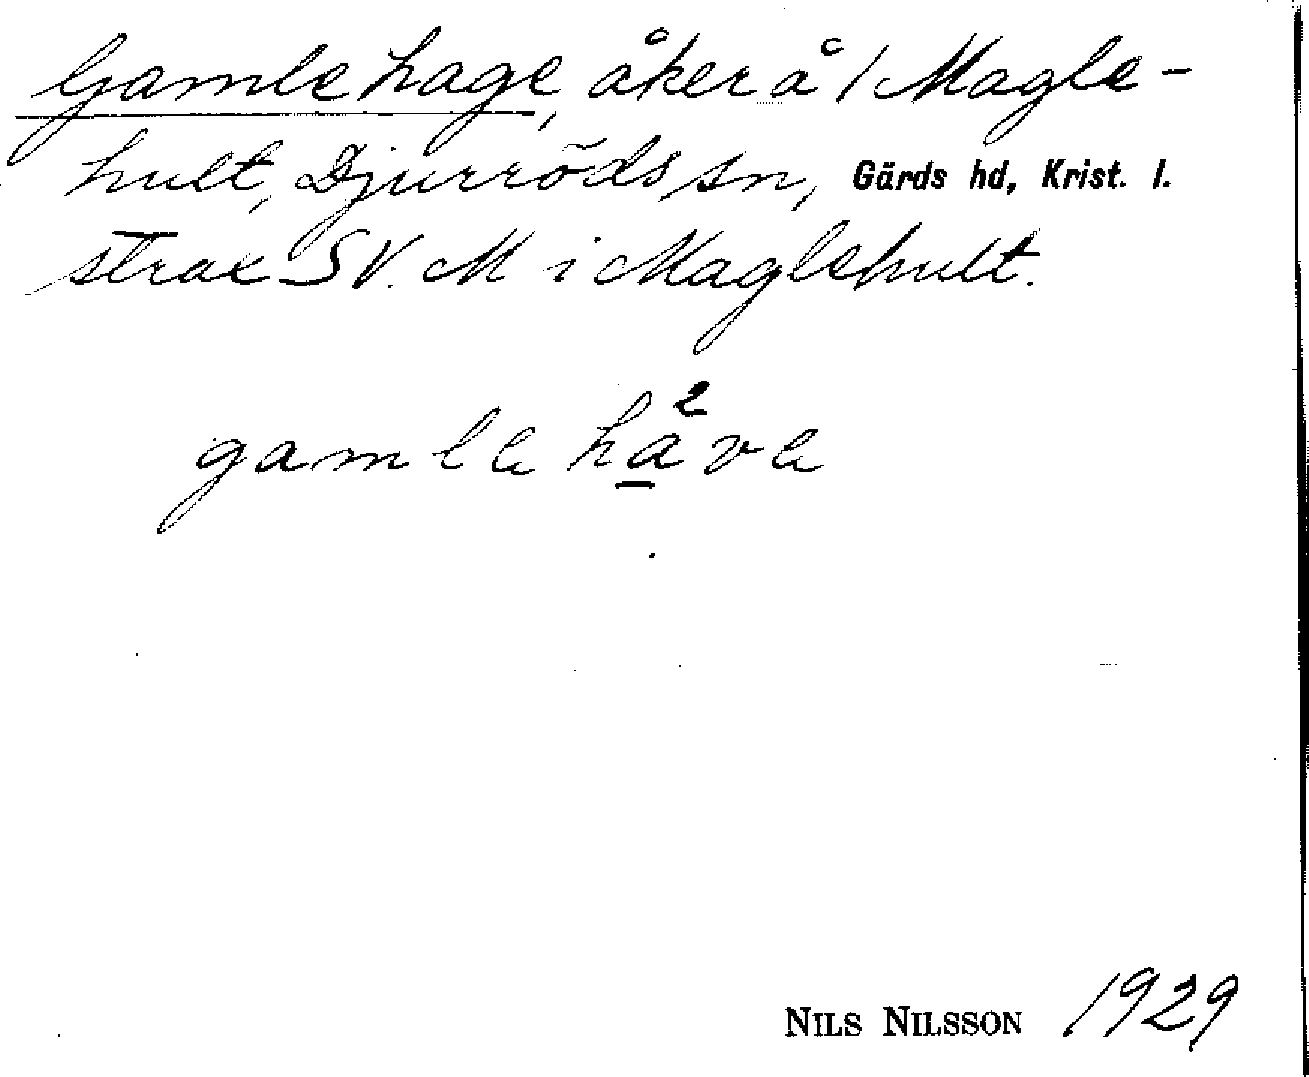 Gamlehage, åker å 1 Magle-
hult, Djurröds sn, Gärds hd, Krist. l.
strax SV. M i Maglehult.
gamle håve
NILS NILSSON 1929